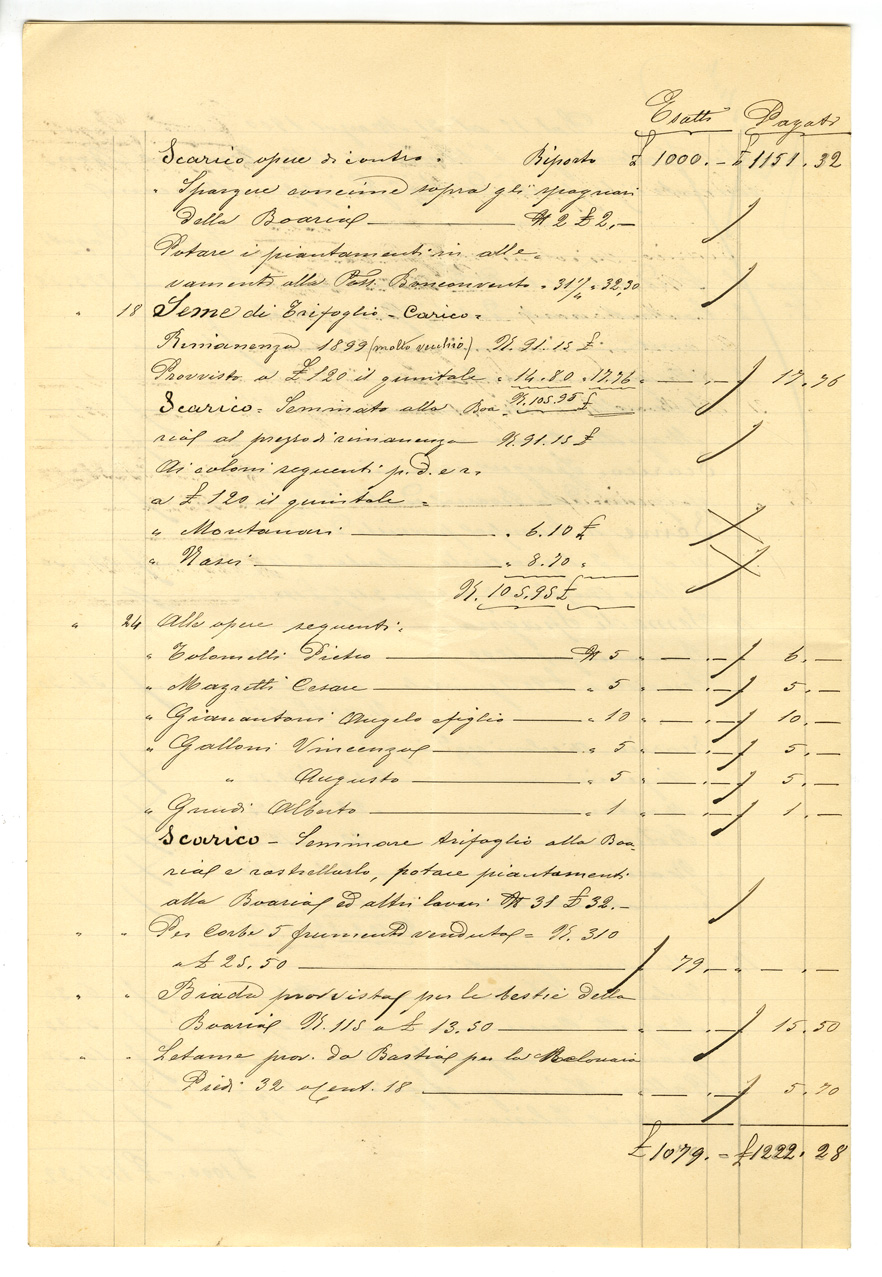 Esatti Pagati
Scarico opere di contro. Riporto £ 1000. – £ 1151. 32
" Spargere concime sopra gli spagnari
della Boaria — N 2 £ 2,–
Potare i piantamenti in alle-
vamento alla Poss. Bonconvento " 31 " 32,30
" 18 Seme di Trifoglio – Carico =
Rimanenza 1899 (molto vecchio) K. 91.15 £
Provvisto a £ 120 il quintale " 14.80 " 17.76 " — . — 17. 76
Scarico = Seminato alla Boa- K. 105.95 £
ria al prezzo di rimanenza K. 91.15 £
Ai coloni seguenti p. d. e r.
a £ 120 il quintale =
" Montanari — " 6.10 £
" Nasci — " 8.70 "
K. 105.95 £
" 24 Alle opere seguenti:
" Tolomelli Pietro — N 5 " — . — 6. —
" Mazzetti Cesare — " 5 " — . — 5. —
" Gianantoni Angelo e figlio — " 10 " — . — 10. —
" Galloni Vincenza — " 5 " — . — 5. —
" Augusto — " 5 " — . — 5. —
" Grudi Alberto — " 1 " — . — 1. —
Scarico – Seminare trifoglio alla Boa-
ria e rastrellarlo, potare piantamenti
alla Boaria ed altri lavori N 31 £ 32.–
" " Per Corbe 5 frumento venduta = K. 310
a £ 25.50 — 79. — " — . —
" " Biada provvista per le bestie della
Boaria K. 115 a £ 13.50 — " — . — 15. 50
" " Letame prov. da Bastia per la
Piedi 32 a Cent. 18 — " — . — 5. 70
£ 1079. = £ 1222. 28